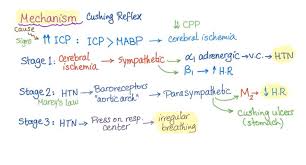 Mechanism Cushing Reflex
↓ CPP
cause ↑↑ ICP : ICP > MABP → cerebral ischemia
signs
Stage 1: Cerebral ischemia → Sympathetic → α₁ adrenergic → v.c. → HTN
β₁ → ↑ H.R
Stage 2: HTN → Baroreceptors "aortic arch" → Parasympathetic → M₂ → ↓ H.R
Marey's law
cushing ulcers (stomach)
Stage 3: HTN → Press on resp. center → irregular breathing